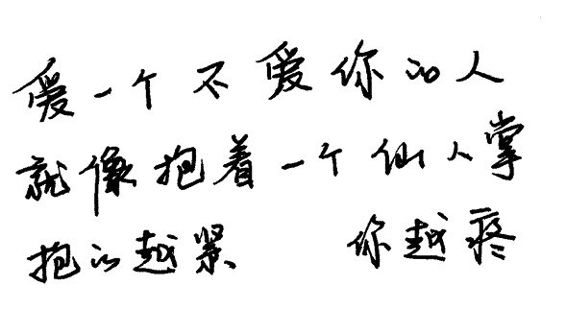 爱一个不爱你的人
就像抱着一个仙人掌
抱的越紧 你越疼